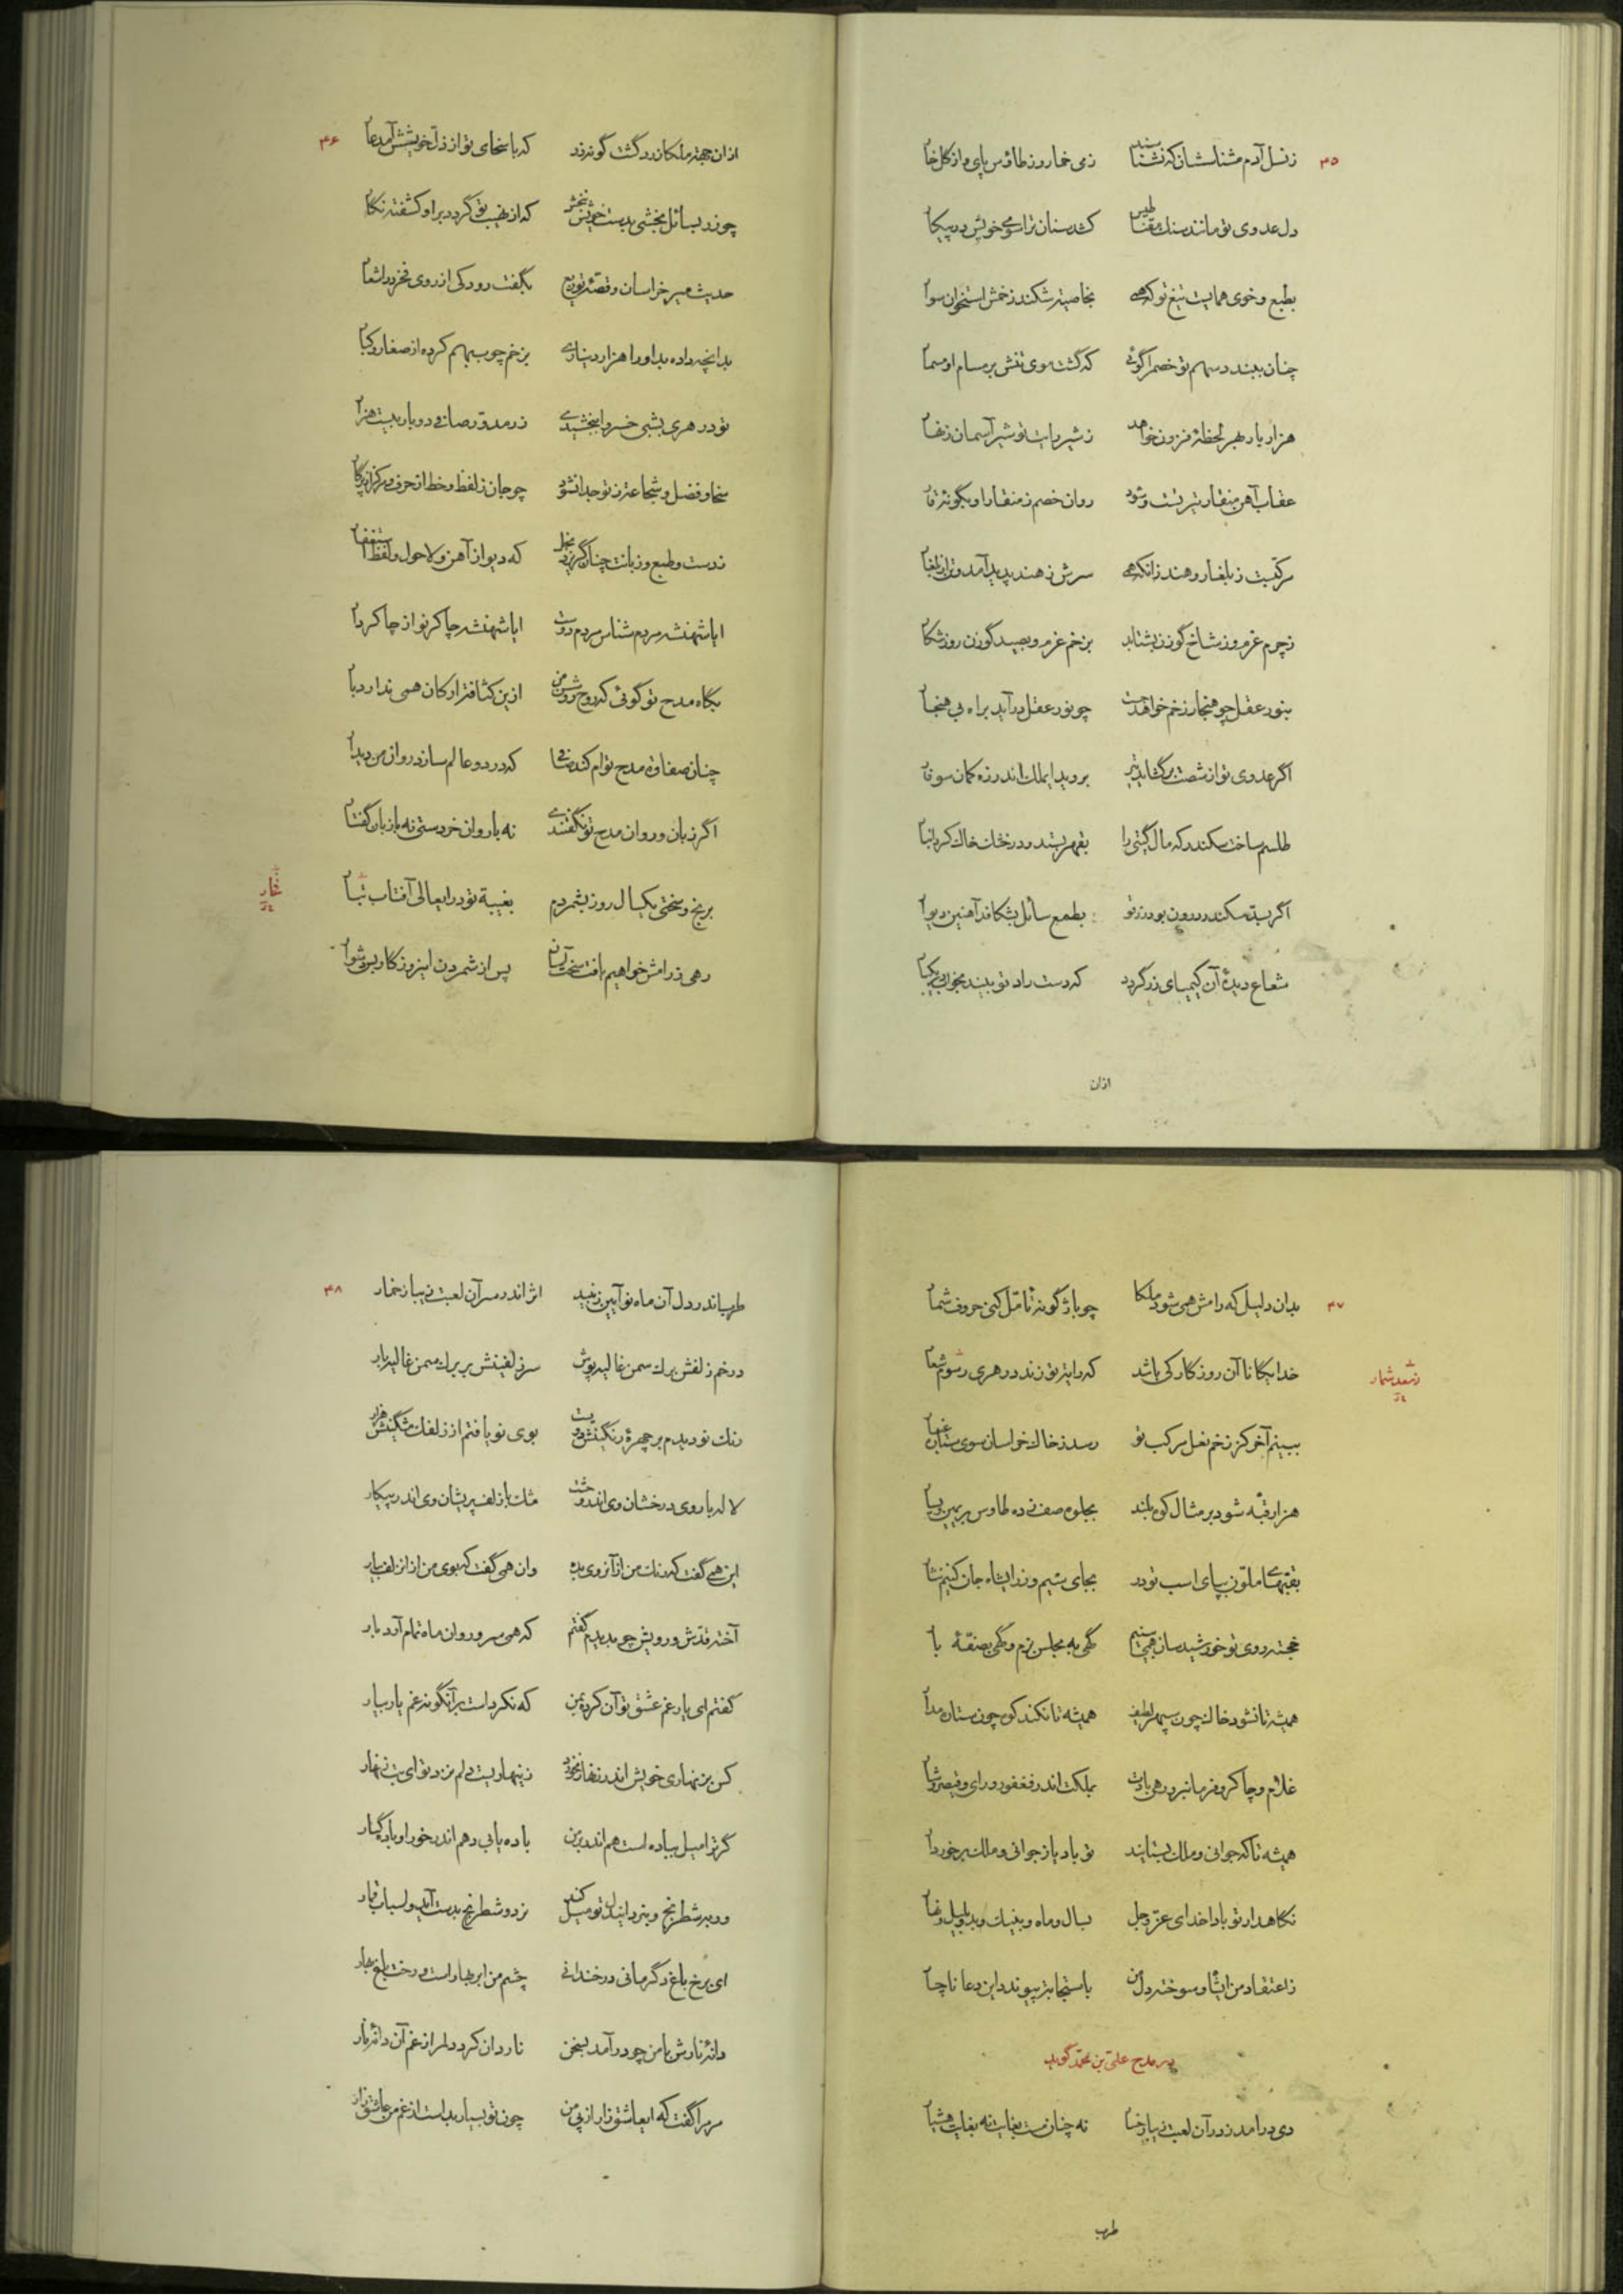 ۴۵
ز نسل آدم مشناسشان که نشناسند ز می خمار و ز طاوس پای و از گل خار
دل عدوی تو مانند سنك مقناطیس کشد سنان ترا سوی خویش در پیکار
بطبع و خوی همایست تیغ تو که همی بخاصیت شکند زخمش استخوان سوار
چنان ببندد سهم تو خصم را گوئی که گشت موی تنش بر مسام او مسمار
هزار بار بهر لحظهٔ فزون خواهد ز شیر رایت تو شیر آسمان زنهار
عقاب آهن منقار تیر تست و شود روان خصم ز منقار او بگونهٔ قار
مرکبست ز بلغار و هند زانکه همی سرش ز هند پدید آمد و تن از بلغار
ز چرم غرم و ز شاخ گوزن بشتابد بزخم غرم و بصید گوزن روز شکار
بنور عقل چو هنجار زخم خواهد جست چو نور عقل در آید براه بی هنجار
اگر عدوی تو از شصت برگشاید تیر بروید ایملك اندر زه کمان سوفار
طلسم ساخت سکندر که مال گیتی را بقهر بستد و در خاك کرد انبار
اگر بسد سکندر درون بود زر تو بطمع سائل بشکافد آهنین دیوار
شعاع دیدهٔ آن کیمیای زر گردد که دست راد تو بیند بخواب در یکبار
ازان
۴۶
ازان جهت ملکا زرد گشت گونهٔ زر که با سخای تو از ذل خویشش آمد عار
چو زر بسائل بخشی بدست خویش ببخش که از نهیب تو گردد بر او کشفته نگار
حدیث میر خراسان و قصهٔ توزیع بگفت رودکی از روی فخر در اشعار
بدانچه داده بد او را هزار دیناری بزخم چوب بهم کرده از صغار و کبار
تو در هری بشبی خسروا ببخشیدی زر مدور صافی دو بار بیست هزار
سخا و فضل و شجاعت ز تو جدا نشود چو جان ز لفظ و خط از حرف و مرکز از پرگار
ز دست و طبع و زبانت چنان گریزد بخل که دیو از آهن و لا حول و لفظ استغفار
ایا شهنشه مردم شناس مردم دوست ایا شهنشه چاکر نواز چاکر دار
بگاه مدح تو گوئی که روح روشن من ازین کثافت ارکان همی ندارد بار
چنان صفاوت مدح توام کند صافی که در دو عالم سازد روان من دیدار
اگر زبان و روان مدح تو نگفتندی نه با روان خردستی نه با زبان گفتار
برنج و سختی یکسال روز بشمردم بغیبة تو در ایعالی آفتاب تبار
رهی ز رامش خواهیم یافت سخت آسان پس از شمردن این روزگار بس دشوار
۴۷
بدان دلیل که رامش همی شود ملکا چو باژگونه تأمل کنی حروف شمار
خدایگانا آن روزگار کی باشد که رایت تو زند در هری رسوم شعار
ببینم آخر کز زخم نعل مرکب تو رسد ز خاك خراسان سوی ستاره غبار
هزار قبه شود بر مثال کوه بلند بجلوه صف زده طاوس بر یمین و یسار
بقبهای ملون بپای اسب تو در بجای سیم و زر ایشاه جان کنیم نثار
خجسته روی تو خورشید سان همی بینیم گهی به مجلس بزم و گهی بصفهٔ بار
همیشه تا نشود خاك چون سپهر لطیف همیشه تا نکند کوه چون ستاره مدار
غلام و چاکر و فرمانبر و رهی بادت بملکت اندر فغفور و رای و قیصر و شار
همیشه تا که جوانی و ملك بستایند تو باد یاز جوانی و ملك برخوردار
نگاهدار تو بادا خدای عز و جل بسال و ماه و بنیك و بد و بلیل و نهار
ز اعتقاد من ایشاه و سوخته دل من باستجابت پیوندد این دعا ناچار
در مدح علی بن محمد گوید
دی در آمد ز در آن لعبت زیبا رخسار نه چنان مست بغایت نه بغایت هشیار
طرب
۴۸
طرب اندر دل آن ماه نو آیین ز نبید اثر اندر سر آن لعبت زیبا ز خمار
در خم زلفش برك سمن غالیه پوش سر زلفینش بر برك سمن غالیه بار
رنك نو دیدم بر چهرهٔ رنگینش دویست بوی نو یافتم از زلفك مشکینش هزار
لاله با روی درخشان وی اندر وحشت مشك با زلف پریشان وی اندر پیکار
این همی گفت که رنك من از آنروی بده وان همی گفت که بوی من از آن زلف بیار
آخته قدش و رویش چو بدیدم گفتم که همی سرو روان ماه تمام آرد بار
گفتم ای یار غم عشق تو آن کرد بمن که نکرداست بر آنگونه غم یار بیار
کس بزنهاری خویش اندر زنهار نخورد زینهاریست دلم نزد تو ای بت زنهار
گر ترا میل بباده است هم اندر بر من باده یابی و هم اندر خور او باده گسار
ور بشطرنج و بنرد ایدل تو میل کند نرد و شطرنج بدست آید و اسباب قمار
ای برخ باغ دگر مانی در خندانی چشم من ابر بهار است و رخت باغ بهار
دانهٔ نارش با من چو در آمد بسخن ناردان کرد دلم از غم آن دانهٔ نار
مر مرا گفت که ایعاشق زار از پی من چون تو بسیار بد است از غم من عاشق زار